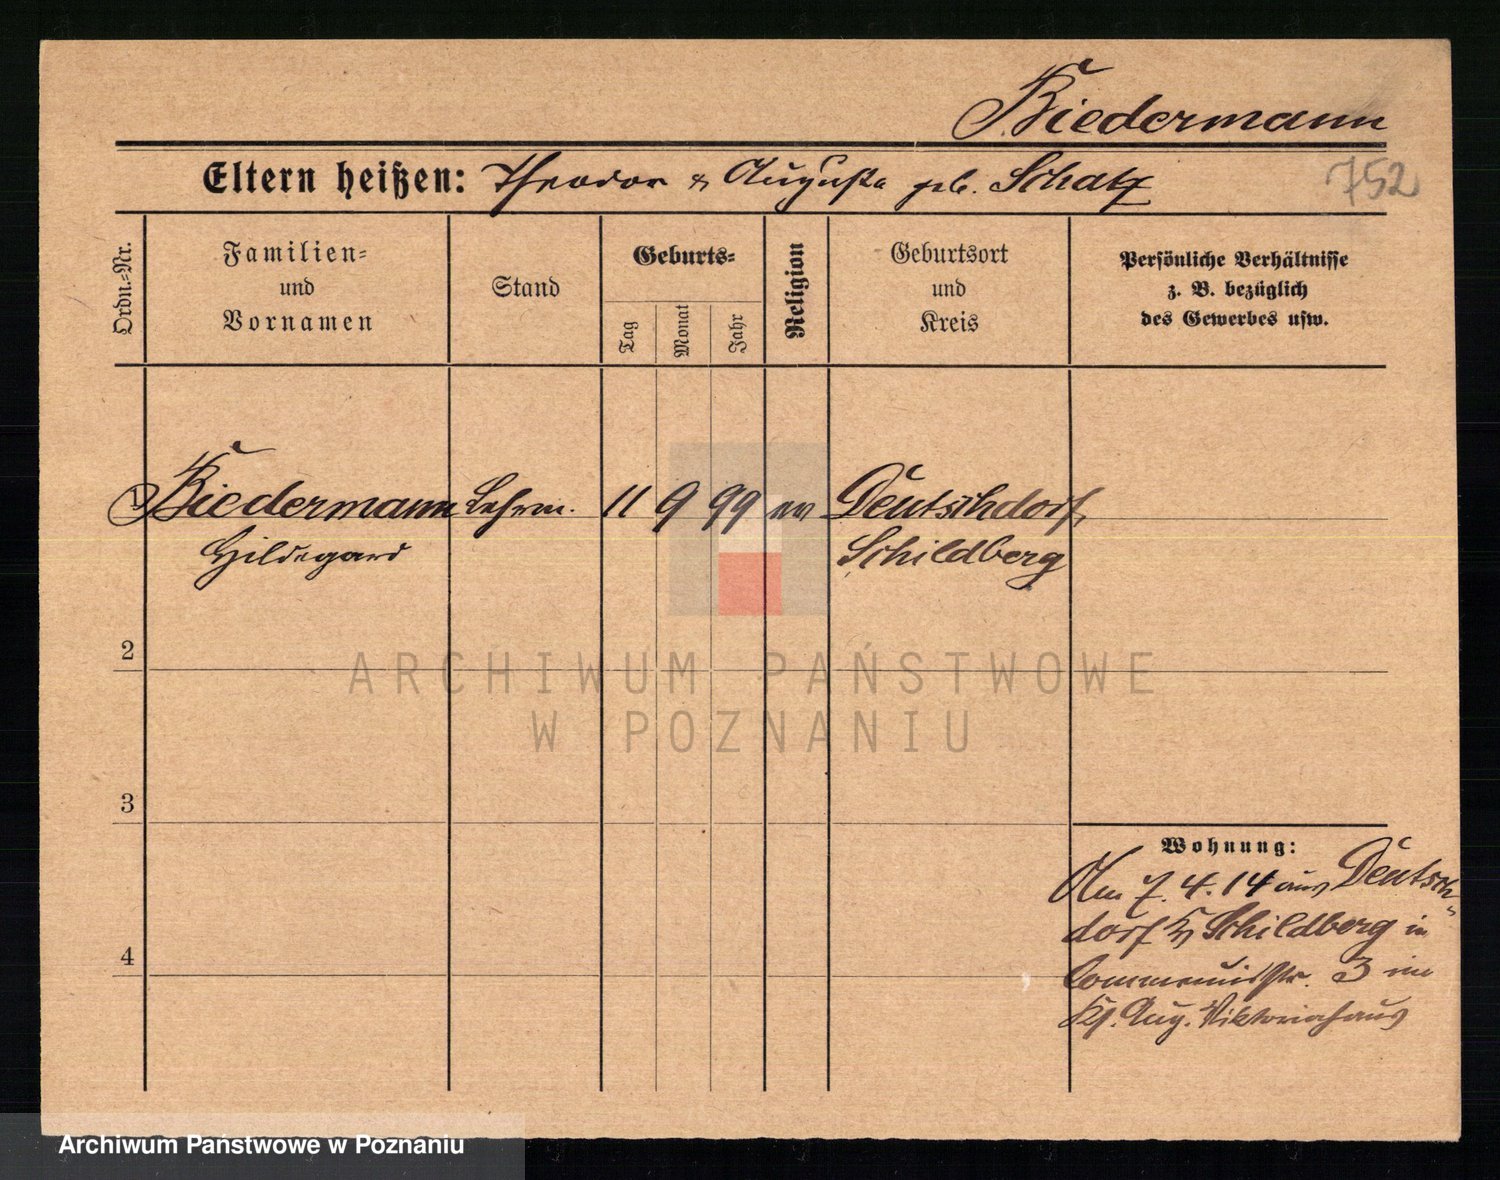 Biedermann
Eltern heißen: Theodor & Auguste geb. Schatz
752
Ordn.-Nr.
Familien-
und
Vornamen
Stand
Geburts-
Tag
Monat
Jahr
Religion
Geburtsort
und
Kreis
Persönliche Verhältnisse
z. B. bezüglich
des Gewerbes usw.
1 Biedermann 11 9 99 ev Deutschdorf
Hildegard Schildberg
2
ARCHIWUM PAŃSTWOWE
W POZNANIU
3
Wohnung:
Am 7. 4. 14 aus Deutsch-
dorf Kr Schildberg in
3 im
Aug. Viktoriahaus
4
Archiwum Państwowe w Poznaniu